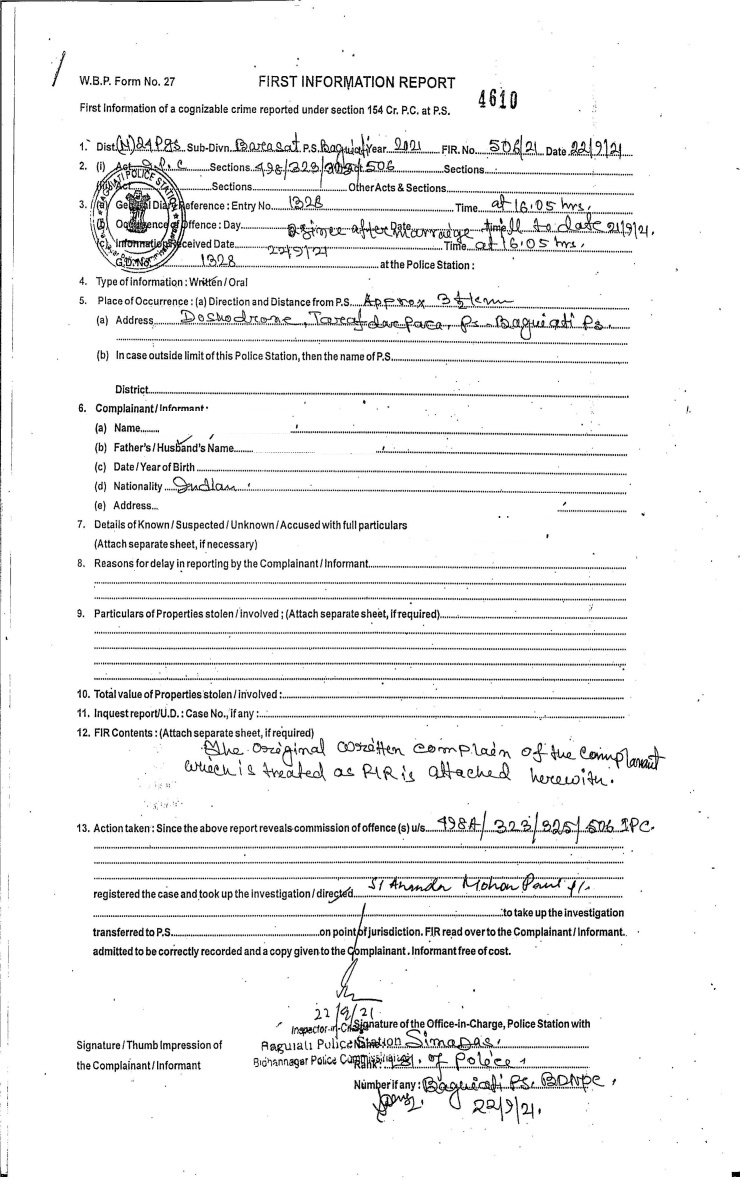 W.B.P. Form No. 27
FIRST INFORMATION REPORT
4610
First Information of a cognizable crime reported under section 154 Cr. P.C. at P.S.
1. Dist. (N) 24 Pgs Sub-Divn. Barasat P.S. Baguiati Year 2021 FIR. No. 506/21 Date 22/9/21
2. (i) Act I.P.C Sections 498/323/325/506 Sections
Act Sections Other Acts & Sections
3. (a) General Diary Reference : Entry No. 1328 Time at 16:05 hrs.
(b) Occurence of Offence : Day Date after Marriage time till to date 21/9/21.
(c) Information Received Date 22/9/21 Time at 16:05 hrs.
G.D. No. 1328 at the Police Station :
4. Type of Information : Written / Oral
5. Place of Occurrence : (a) Direction and Distance from P.S. Approx 3½ km
(a) Address Dashodrone, Ps- Baguiati Ps.
(b) In case outside limit of this Police Station, then the name of P.S.
District
6. Complainant / Informant :
(a) Name
(b) Father's / Husband's Name
(c) Date / Year of Birth
(d) Nationality Indian
(e) Address
7. Details of Known / Suspected / Unknown / Accused with full particulars
(Attach separate sheet, if necessary)
8. Reasons for delay in reporting by the Complainant / Informant
9. Particulars of Properties stolen / involved ; (Attach separate sheet, if required)
10. Total value of Properties stolen / involved :
11. Inquest report / U.D. : Case No., if any :
12. FIR Contents : (Attach separate sheet, if required)
The original written complain of the complainant
which is treated as FIR is attached herewith.
13. Action taken : Since the above report reveals commission of offence (s) u/s 498A/323/325/506 IPC.
registered the case and took up the investigation / directed SI Ananda Mohan Paul
to take up the investigation
transferred to P.S. on point of jurisdiction. FIR read over to the Complainant / Informant.
admitted to be correctly recorded and a copy given to the Complainant. Informant free of cost.
22/9/21
Inspector-in-Charge Signature of the Office-in-Charge, Police Station with
Signature / Thumb Impression of Baguiati Police Station Name: Sima Das.
the Complainant / Informant Bidhannagar Police Commissionerate Rank: of Police,
Number if any : Baguiati Ps. BDNPC,
22/9/21.